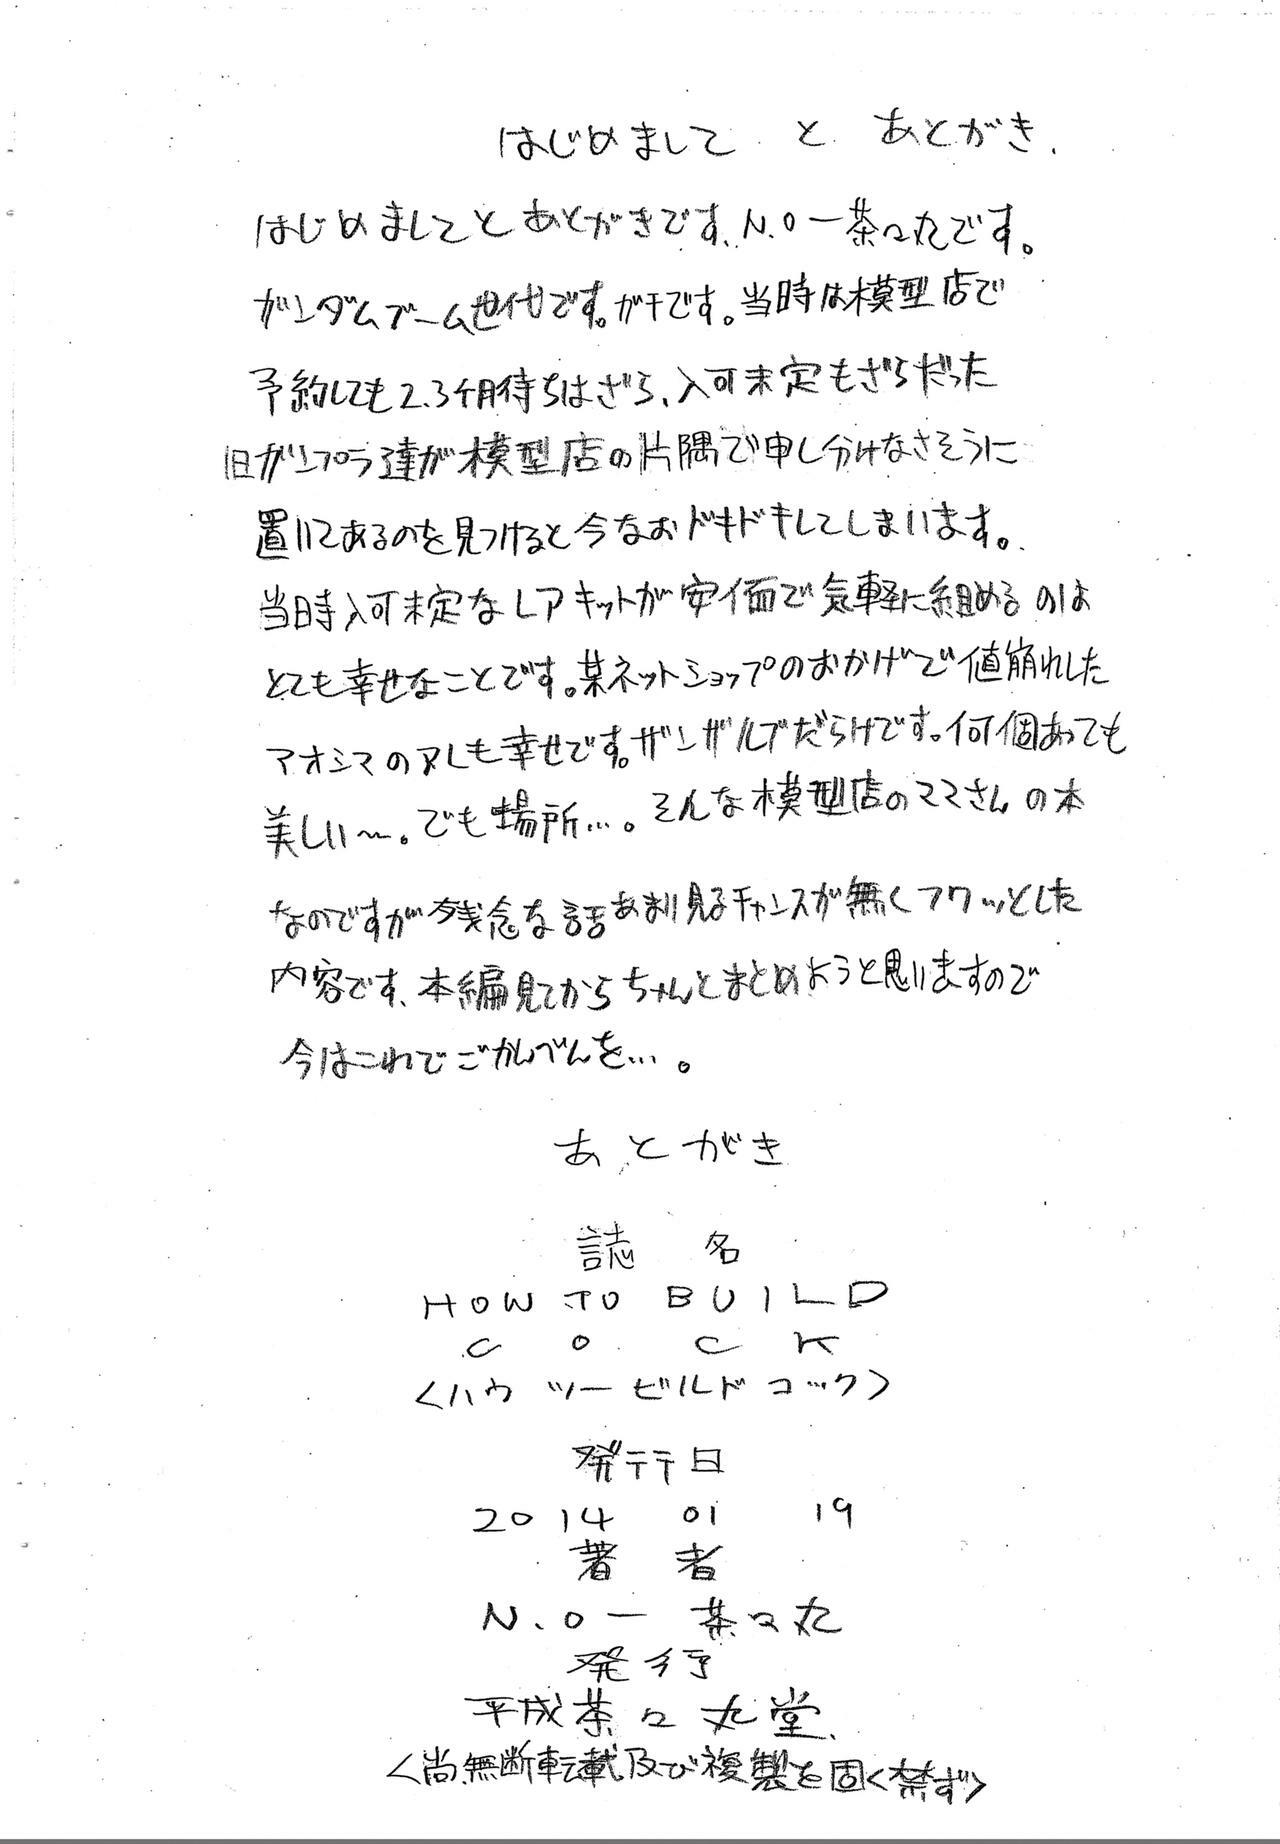 はじめまして と あとがき.
はじめましてとあとがきです、N.O一茶々丸です。
ガンダムブーム世代です。ガチです。当時は模型店で
予約しても2.3ヶ月待ちはざら、入可未定もざらだった
旧ガンプラ達が模型店の片隅で申し分けなさそうに
置いてあるのを見つけると今なおドキドキしてしまいます。
当時入可未定なレアキットが安価で気軽に組めるのは
とても幸せなことです。某ネットショップのおかげで値崩れした
アオシマのアレも幸せです。ザンザルブだらけです。何個あっても
美しい〜。でも場所…。そんな模型店のママさんの本
なのですが残念な話あまり見るチャンスが無くフワッとした
内容です、本編見てからちゃんとまとめようと思いますので
今はこれでごかんべんを…。
あとがき
誌 名
HOW TO BUILD
C O C K
<ハウ ツービルド コック>
発行日
2014 01 19
著 者
N.O一 茶々丸
発行
平成茶々丸堂
<尚無断転載及び複製を固く禁ず>